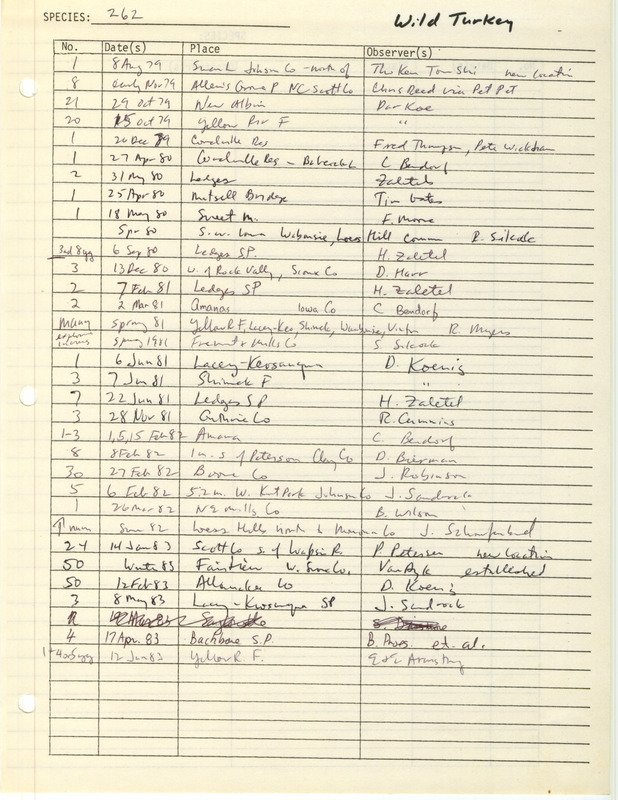 SPECIES: 262
Wild Turkey
No. Date(s) Place Observer(s)
1 8 Aug 79 Johnson Co - north of new location
8 early Nov 79 Allen's Grove P NC Scott Co Chris Reed via Pet Pet
21 29 Oct 79 New Albin Dar Koe
20 15 Oct 79 Yellow Riv F "
1 20 Dec 79 Coralville Res Fred Thompson, Pete Wickham
1 27 Apr 80 Coralville Res - C Bendorf
2 31 May 80 Ledges Zaletel
1 25 Apr 80 Mutsell Bridge Tim
1 18 May 80 Sweet M. F. Moore
Spr 80 S.W. Iowa Waubonsie, Loess Hill R. Silcock
3ad 8yg 6 Sep 80 Ledges SP. H. Zaletel
3 13 Dec 80 W. of Rock Valley, Sioux Co D. Harr
2 7 Feb 81 Ledges SP H. Zaletel
2 2 Mar 81 Amanas Iowa Co C Bendorf
many Spring 81 Yellow R F, Lacey-Keo, Shimek, Waubonsie, R Myers
Spring 1981 Fremont & Mills Co S. Silcock
1 6 Jun 81 Lacey-Keosauqua D. Koenig
3 7 Jun 81 Shimek F "
7 22 Jun 81 Ledges SP H. Zaletel
3 28 Nov 81 Guthrie Co R. Cummins
1-3 1,5,15 Feb 82 Amana C. Bendorf
8 8 Feb 82 1 m. S of Peterson Clay Co D. Bierman
30 27 Feb 82 Boone Co J. Robinson
5 6 Feb 82 5.2 m. W. Kent Park Johnson Co J. Sandrock
1 26 Mar 82 NE Mills Co B. Wilson
Sum 82 Loess Hills north to Monona Co J. Schaufenbuel
24 14 Jan 83 Scott Co S of Wapsi R P. Petersen new location
50 Winter 83 Fairview W. Sioux Co. Van Dyk established
50 12 Feb 83 Allamakee Co D. Koenig
3 8 May 83 Lacey-Keosauqua SP J. Sandrock
4 17 Apr. 83 Backbone S.P. B. et. al.
1+4or5yg 12 Jun 83 Yellow R. F. E&E Armstrong